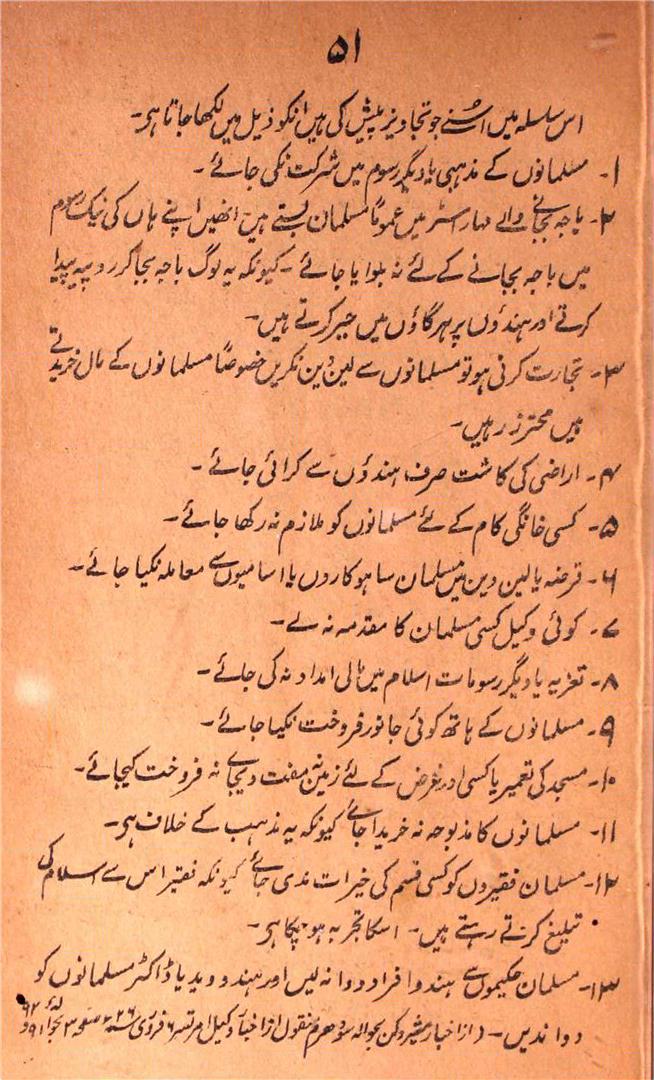 ۵۱
اس سلسلہ میں اسنے جو تجاویز پیش کی ہیں انکو ذیل میں لکھا جاتا ہی۔
۱۔ مسلمانوں کے مذہبی یا دیگر رسوم میں شرکت نکی جائے۔
۲۔ باجہ بجانے والے مہاراسٹر میں عموماً مسلمان بستے ہیں انھیں اپنے ہاں کی نیک رسوم
میں باجہ بجانے کے لئے نہ بلوایا جائے۔ کیونکہ یہ لوگ باجہ بجا کر روپیہ پیدا
کرتے اور ہندؤوں پر ہر گاؤں میں جبر کرتے ہیں۔
۳۔ تجارت کرنی ہو تو مسلمانوں سے لین دین نکریں خصوصاً مسلمانوں کے مال خریدنے
میں محترز رہیں۔
۴۔ اراضی کی کاشت صرف ہندؤں سے کرائی جائے۔
۵۔ کسی خانگی کام کے لئے مسلمانوں کو ملازم نہ رکھا جائے۔
۶۔ قرضہ یا لین دین میں مسلمان ساہوکاروں یا اسامیوں سے معاملہ نکیا جائے۔
۷۔ کوئی وکیل کسی مسلمان کا مقدمہ نہ لے۔
۸۔ تعزیہ یا دیگر رسومات اسلام میں مالی امداد نہ کی جائے۔
۹۔ مسلمانوں کے ہاتھ کوئی جانور فروخت نکیا جائے۔
۱۰۔ مسجد کی تعمیر یا کسی اور غرض کے لئے زمین نہ مفت دیجائے نہ فروخت کیجائے۔
۱۱۔ مسلمانوں کا مذبوحہ نہ خریدا جائے کیونکہ یہ مذہب کے خلاف ہی۔
۱۲۔ مسلمان فقیروں کو کسی قسم کی خیرات ندی جائے کیونکہ فقیر اس سے اسلام کی
تبلیغ کرتے رہتے ہیں۔ اسکا تجربہ ہو چکا ہی۔
۱۳۔ مسلمان حکیموں سے ہندو افراد دوا نہ لیں اور ہندو وید یا ڈاکٹر مسلمانوں کو
دوا ندیں۔ (از اخبار مشیر دکن بحوالہ سودھرم منقول از اخبار وکیل امرتسر ۶ فروری سنہ ۲۶ صفحہ ۳